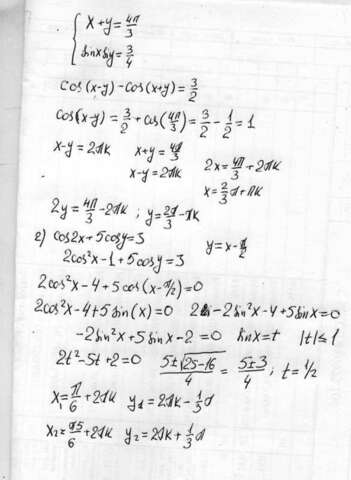 x+y=4π/3
sinxsiny=3/4
cos(x-y)-cos(x+y)=3/2
cos(x-y)=3/2+cos(4π/3)=3/2-1/2=1
x-y=2πk x+y=4π/3 2x=4π/3+2πk
x-y=2πk x=2/3π+πk
2y=4π/3-2πk ; y=2π/3-πk
2) cos2x+5cosy=3 y=x-π/2
2cos²x-1+5cosy=3
2cos²x-4+5cos(x-π/2)=0
2cos²x-4+5sin(x)=0 2-2sin²x-4+5sinx=0
-2sin²x+5sinx-2=0 sinx=t |t|≤1
2t²-5t+2=0 5±√25-16/4=5±3/4; t=1/2
x₁=π/6+2πk y₁=2πk-1/3π
x₂=π5/6+2πk y₂=2πk+1/3π